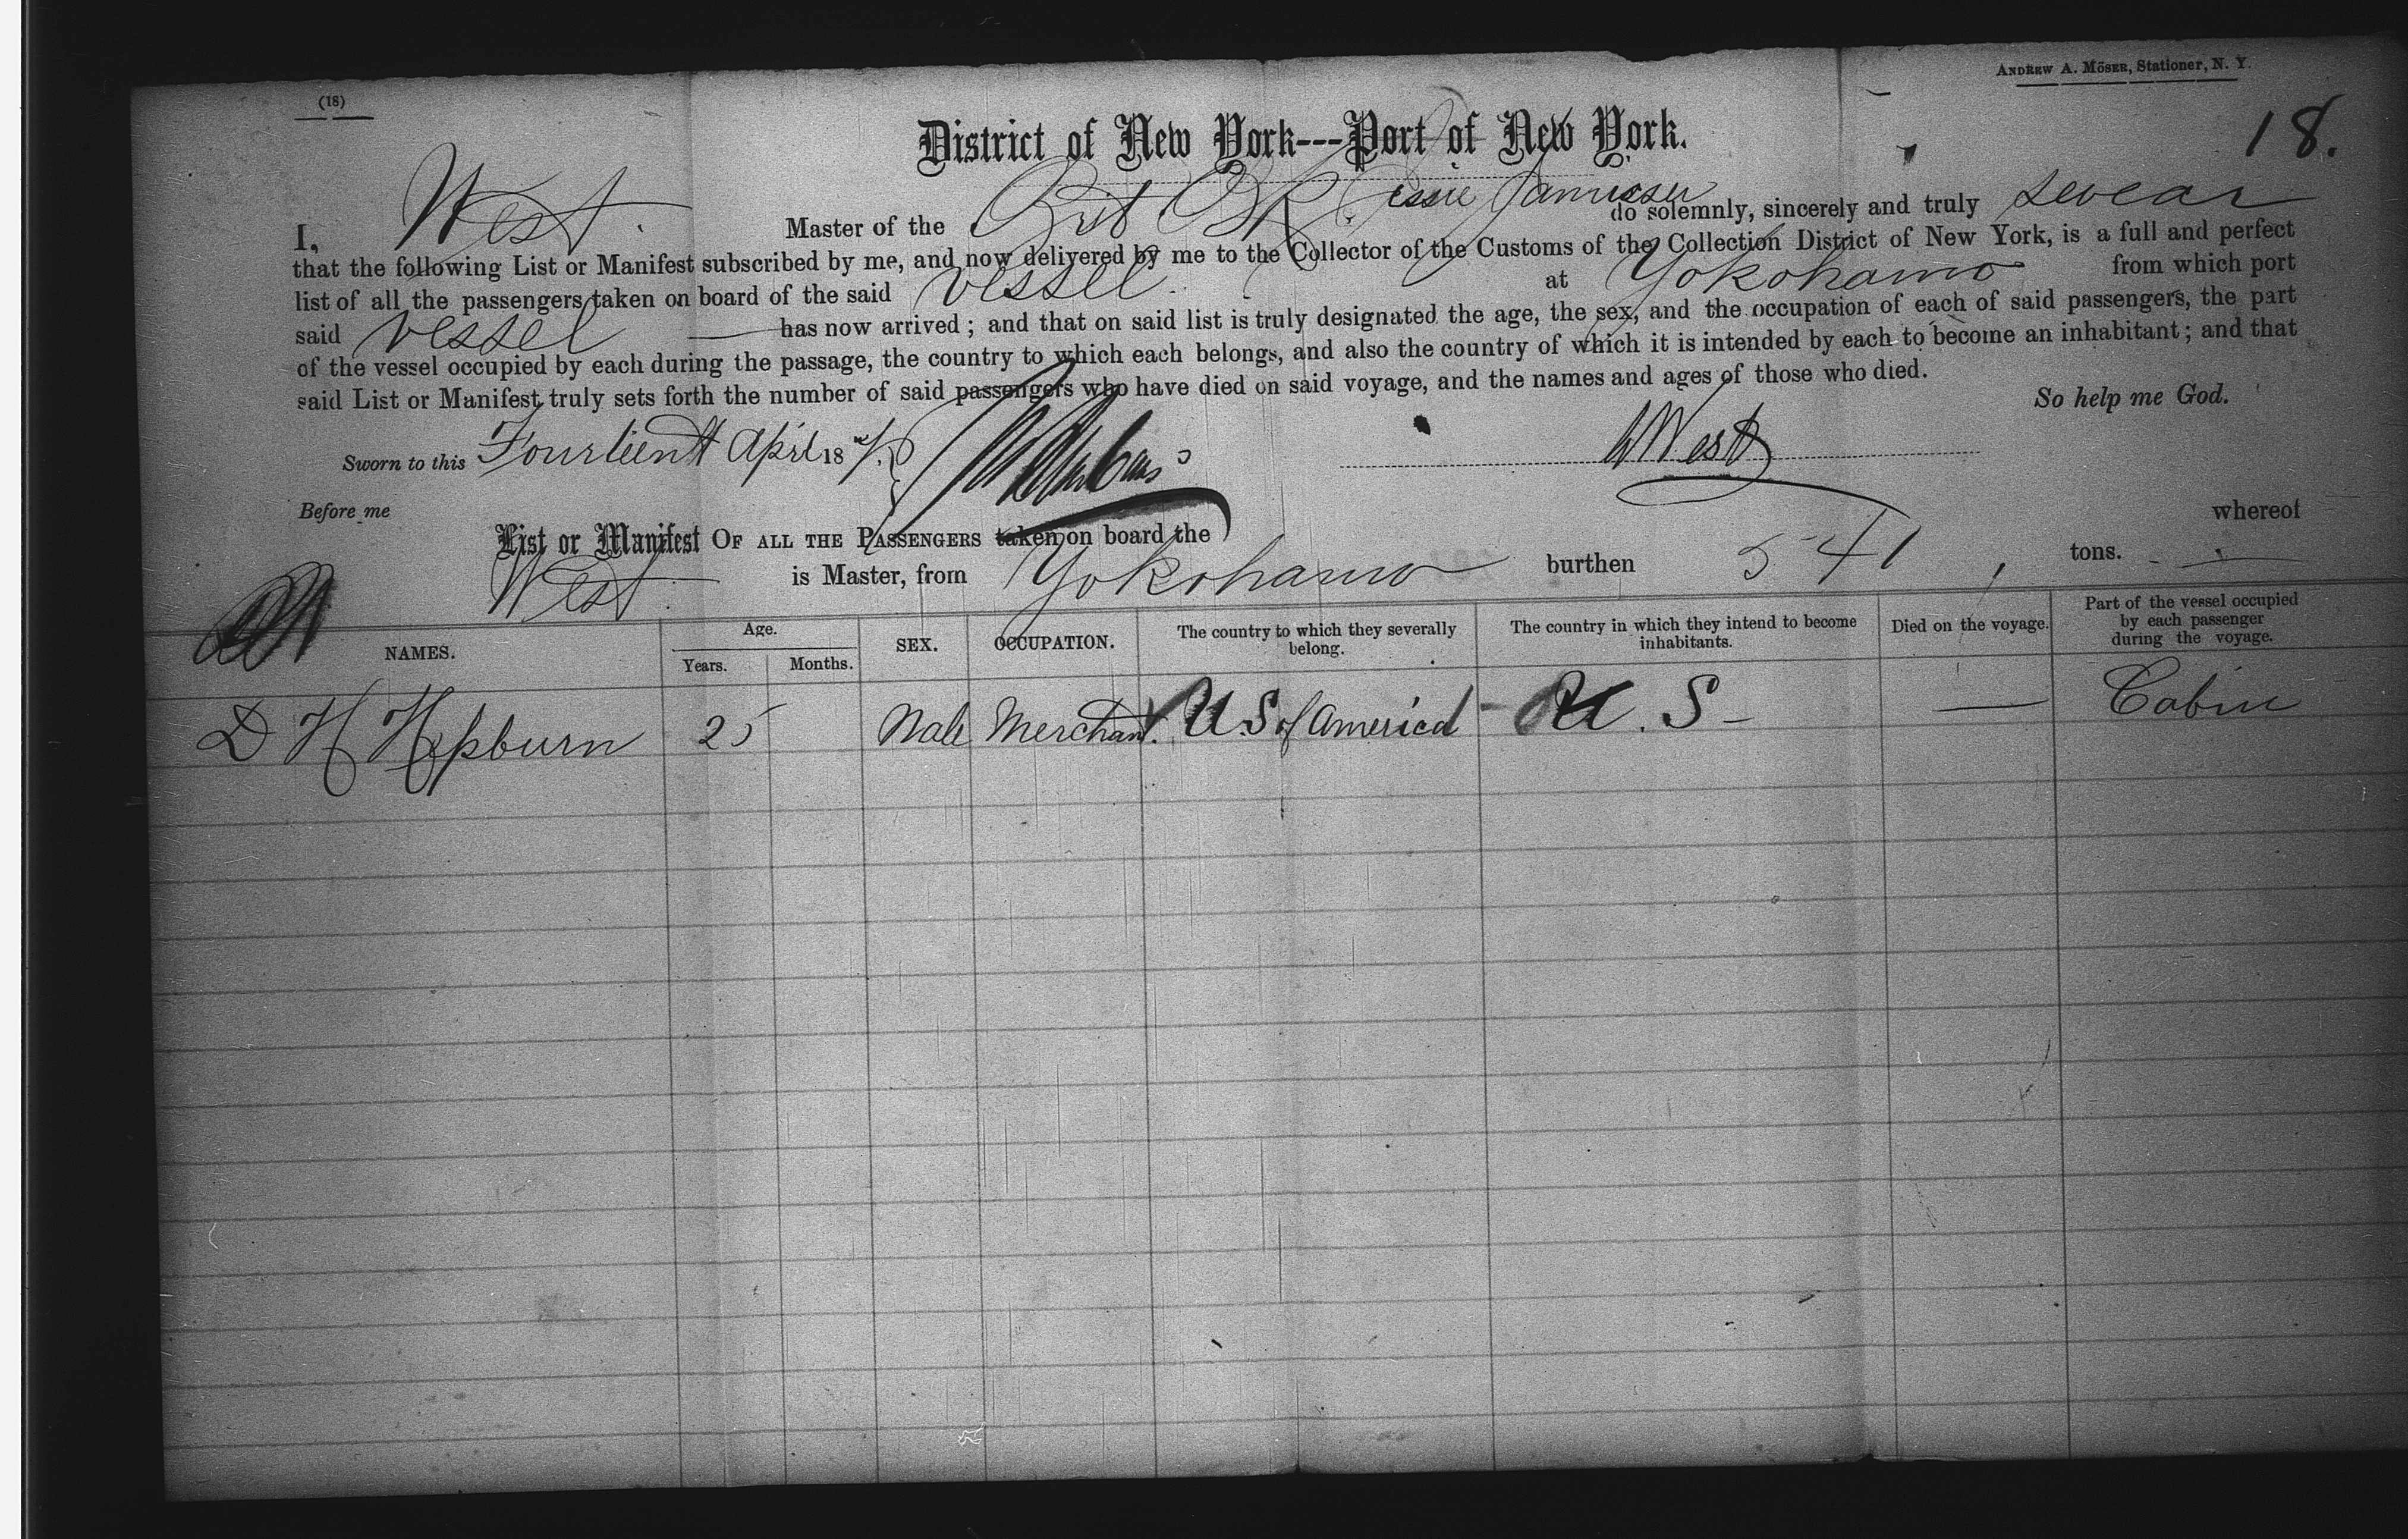 (18)
ANDREW A. MÖSER, Stationer, N. Y.
18.
District of New York---Port of New York.
I, West Master of the Brit Bk Jessie Jamieson do solemnly, sincerely and truly swear
that the following List or Manifest subscribed by me, and now delivered by me to the Collector of the Customs of the Collection District of New York, is a full and perfect
list of all the passengers taken on board of the said vessel at Yokohama from which port
said vessel has now arrived; and that on said list is truly designated the age, the sex, and the occupation of each of said passengers, the part
of the vessel occupied by each during the passage, the country to which each belongs, and also the country of which it is intended by each to become an inhabitant; and that
said List or Manifest truly sets forth the number of said passengers who have died on said voyage, and the names and ages of those who died.
So help me God.
Sworn to this Fourteenth April 187 W West
Before me
List or Manifest OF ALL THE PASSENGERS taken on board the whereof
West is Master, from Yokohama burthen 541 tons.
NAMES. Age. Years. Months. SEX. OCCUPATION. The country to which they severally belong. The country in which they intend to become inhabitants. Died on the voyage. Part of the vessel occupied by each passenger during the voyage.
D H Hepburn 25 Male Merchant. U.S of America - U. S - — Cabin